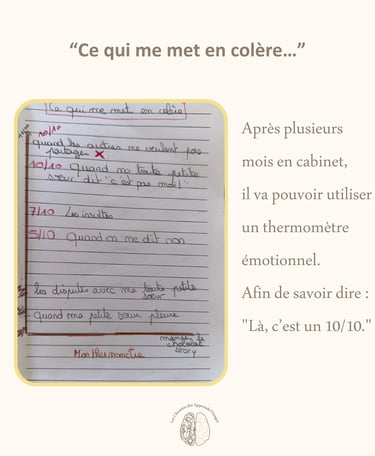 “Ce qui me met en colère…”
Ce qui me met en colère
10/10
quand les autres ne veulent pas
partager
10/10 Quand ma toute petite
sœur dit "c'est pas moi!"
7/10 Les insultes
5/10 Quand on me dit non
les disputes avec ma toute petite
sœur
quand ma petite sœur pleure
manger le
chocolat
story
Mon thermomètre
Après plusieurs
mois en cabinet,
il va pouvoir utiliser
un thermomètre
émotionnel.
Afin de savoir dire :
"Là, c’est un 10/10."